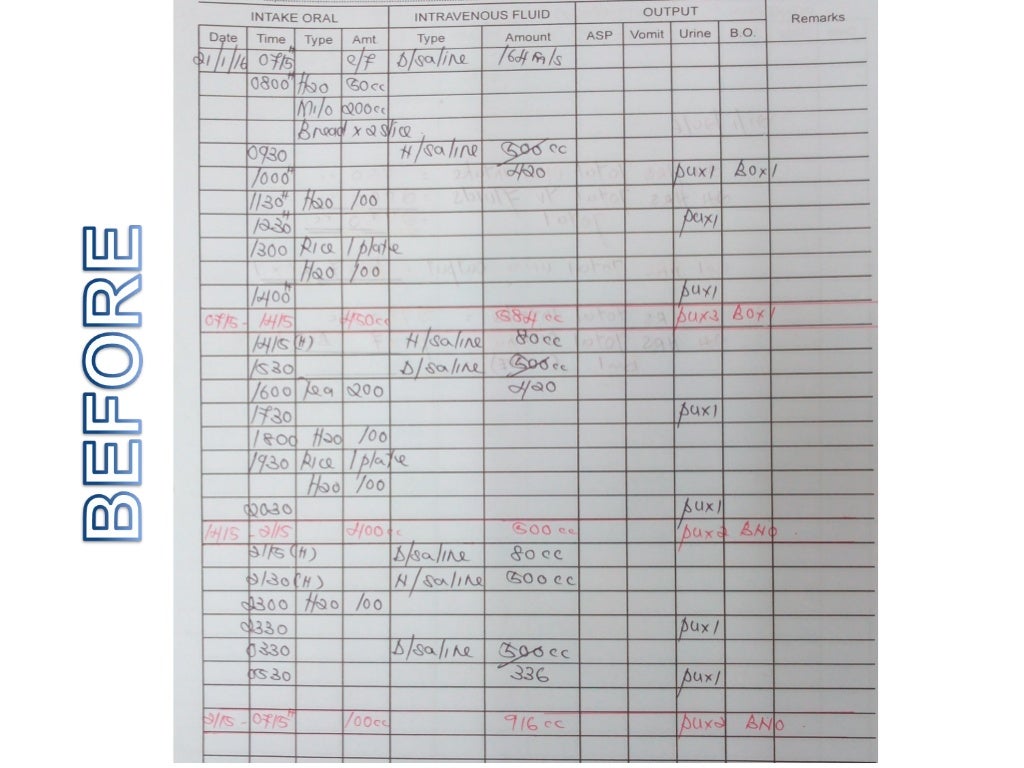 BEFORE
INTAKE ORAL INTRAVENOUS FLUID OUTPUT Remarks
Date Time Type Amt Type Amount ASP Vomit Urine B.O.
21/1/16 0715H c/f D/saline 164 mls
0800H H20 50cc
Milo 200cc
Bread x 2 slice
0930 N/saline 500cc
1000H 420 pux1 BOx1
1130H H20 100
1230H pux1
1300 Rice 1 plate
H20 100
1400H pux1
0715 - 1415 450cc 584 cc pux3 BOx1
1415 (H) N/saline 80cc
1530 D/saline 500cc
1600 Tea 200 420
1730 pux1
1800 H20 100
1930 Rice 1 plate
H20 100
2030 pux1
1415 - 2115 400cc 500 cc pux2 BNO
2115 (H) D/saline 80cc
2130 (H) N/saline 500cc
2300 H20 100
2330 pux1
0330 D/saline 500cc
0530 336 pux1
2115 - 0715H 100cc 916 cc pux2 BNO